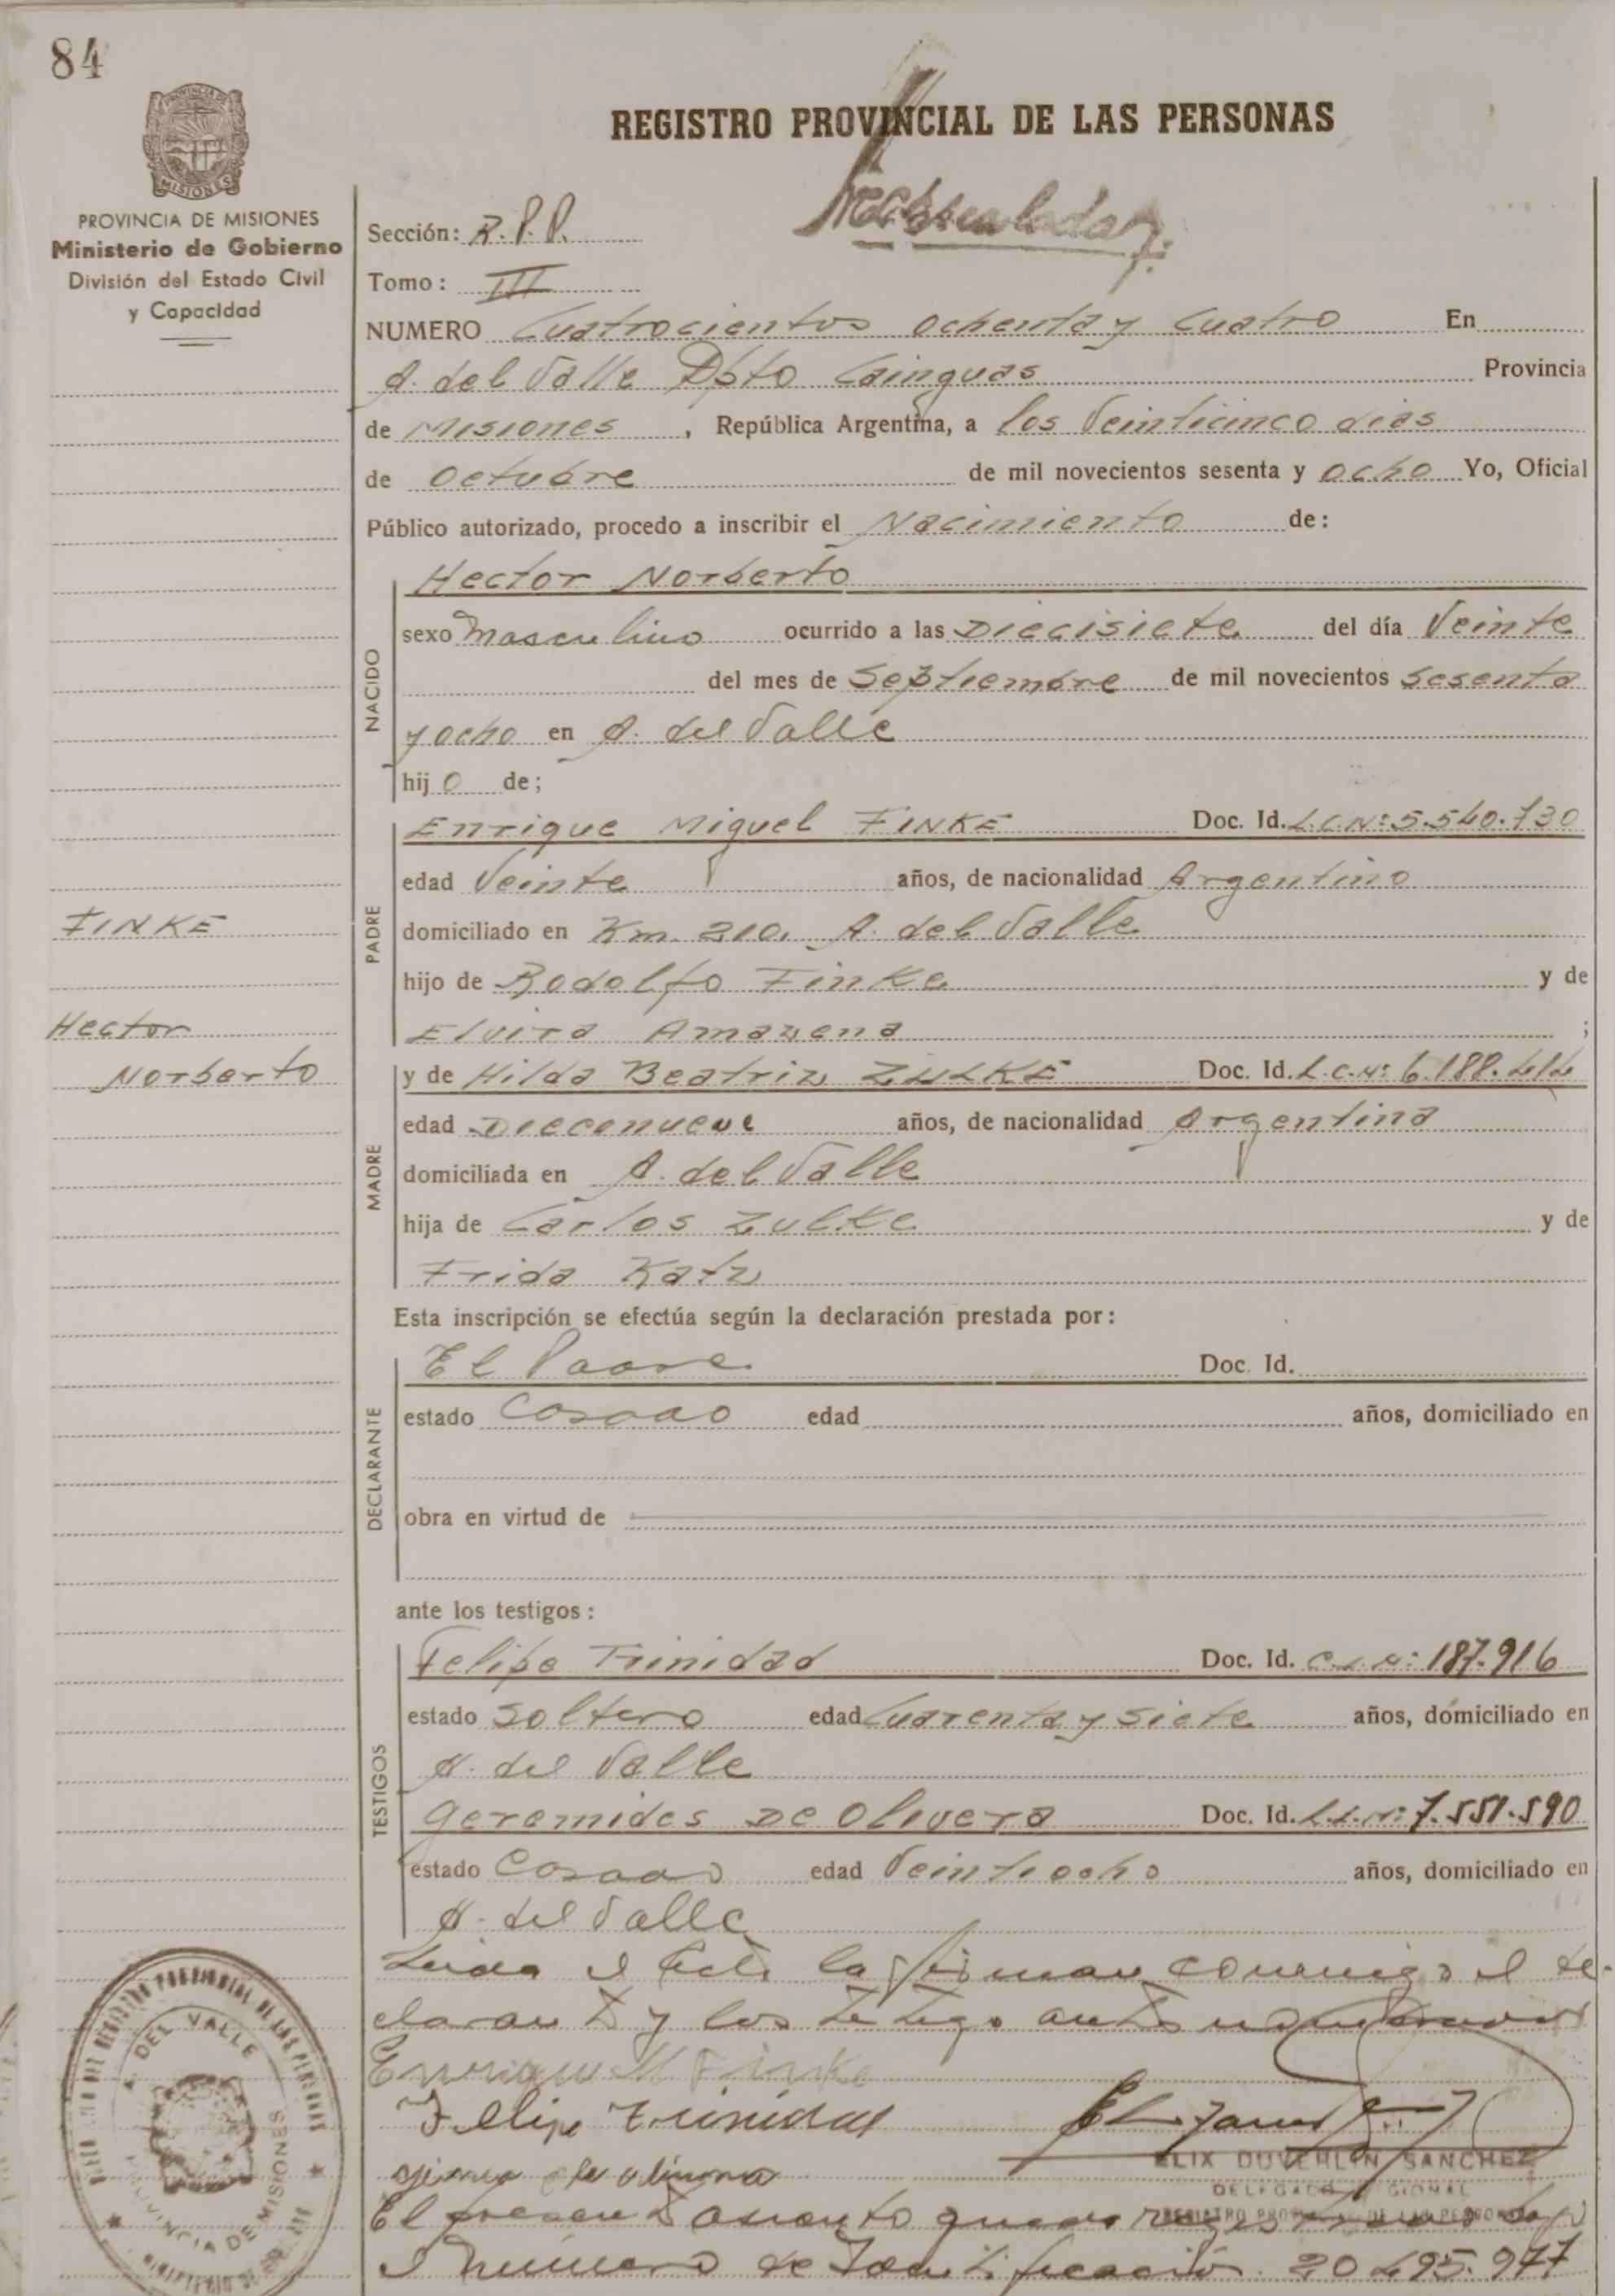 84
REGISTRO PROVINCIAL DE LAS PERSONAS
PROVINCIA DE MISIONES
Ministerio de Gobierno
División del Estado Civil
y Capacidad
Sección: R.P.P.
Tomo: III
NUMERO Cuatrocientos ochenta y cuatro En
A. del Valle Dpto Cainguas Provincia
de Misiones, República Argentina, a los Veinticinco dias
de octubre de mil novecientos sesenta y ocho Yo, Oficial
Público autorizado, procedo a inscribir el Nacimiento de:
Hector Norberto
NACIDO
sexo Masculino ocurrido a las Diecisiete del día Veinte
del mes de Septiembre de mil novecientos sesenta
y ocho en A. del Valle
hijo de;
Enrique Miguel FINKE Doc. Id. L.C.Nº 5.540.730
PADRE
edad Veinte años, de nacionalidad Argentino
domiciliado en Km. 210. A. del Valle
hijo de Rodolfo Finke y de
Elvira Amarena;
FINKE
Hector
Norberto
y de Hilda Beatriz ZULKE Doc. Id. L.C.Nº 6.188.414
MADRE
edad Diecenueve años, de nacionalidad Argentina
domiciliada en A. del Valle
hija de Carlos Zulke y de
Frida Katz
Esta inscripción se efectúa según la declaración prestada por:
El Padre Doc. Id.
DECLARANTE
estado Casado edad años, domiciliado en
obra en virtud de
ante los testigos:
Felipe Trinidad Doc. Id. C.I.Nº 187.916
TESTIGOS
estado Soltero edad Cuarenta y siete años, domiciliado en
A. del Valle
Geremides De Olivera Doc. Id. Nº 7.551.590
estado Casado edad Veintiocho años, domiciliado en
A. del Valle
Leida el Acta la firman conmigo el de-
clarante y los testigo antes
Enrique M Finke
Felipe Trinidad
de olivera
ELIX DUVERLIN SANCHEZ
DELEGADO REGIONAL
REGISTRO PROVINCIAL DE LAS PERSONAS
A. DEL VALLE
PROVINCIA DE MISIONES
El presente asiento queda bajo
el número de Identificación 20.495.977